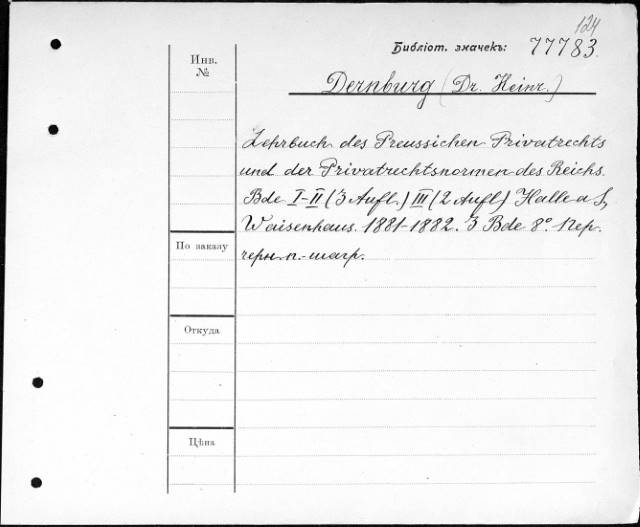 124
Библіот. значекъ: 77783.
Инв. №
Dernburg (Dr. Heinr.)
Lehrbuch des Preussichen Privatrechts
und der Privatrechtsnormen des Reichs.
Bde I-II (3 Aufl.) III (2 Aufl) Halle a S,
Waisenhaus. 1881-1882. 3 Bde 8°. Пер.
По заказу
черн. п.-шагр.
Откуда
Цѣна